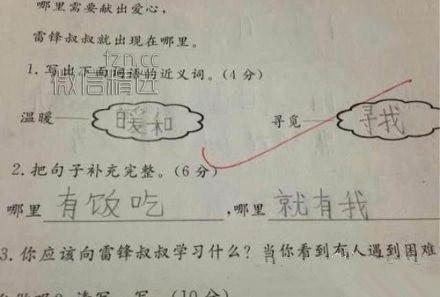 哪里需要献出爱心,
雷锋叔叔就出现在哪里。
fzn.cc
微信精选
1.写出下面词语的近义词。(4分)
温暖——暖和 寻觅——寻找
2.把句子补充完整。(6分)
哪里有饭吃,哪里就有我
3.你应该向雷锋叔叔学习什么?当你看到有人遇到困难
(10分)